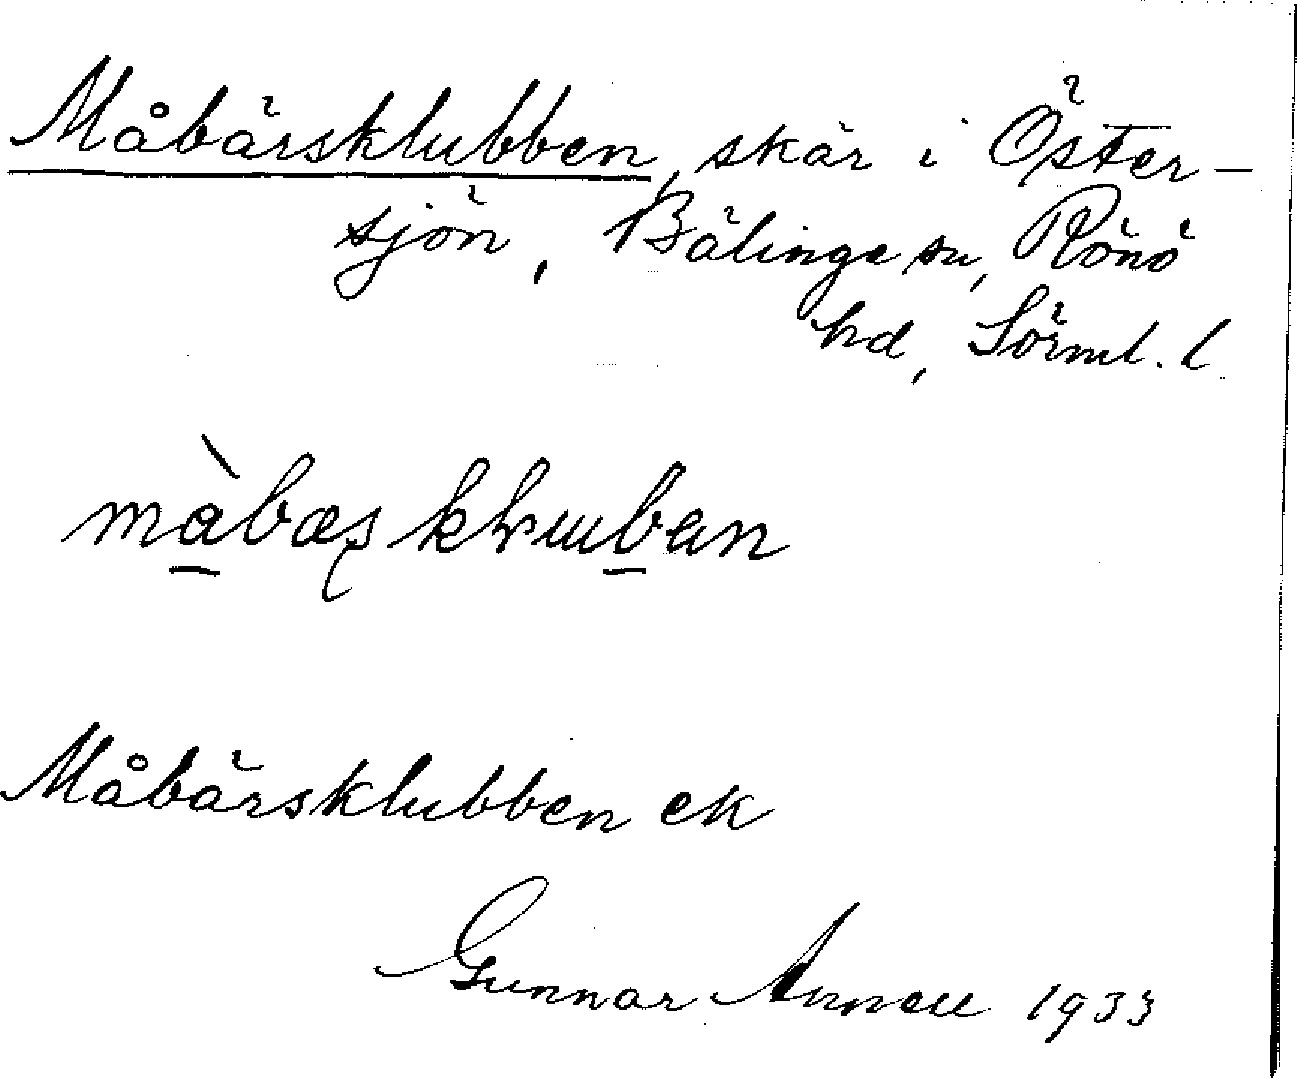 Måbärsklubben, skär i Öster-
sjön, Bälinge sn, Rönö
hd, Sörml. l
måbæskluban
Måbärsklubben ek
Gunnar Annell 1933